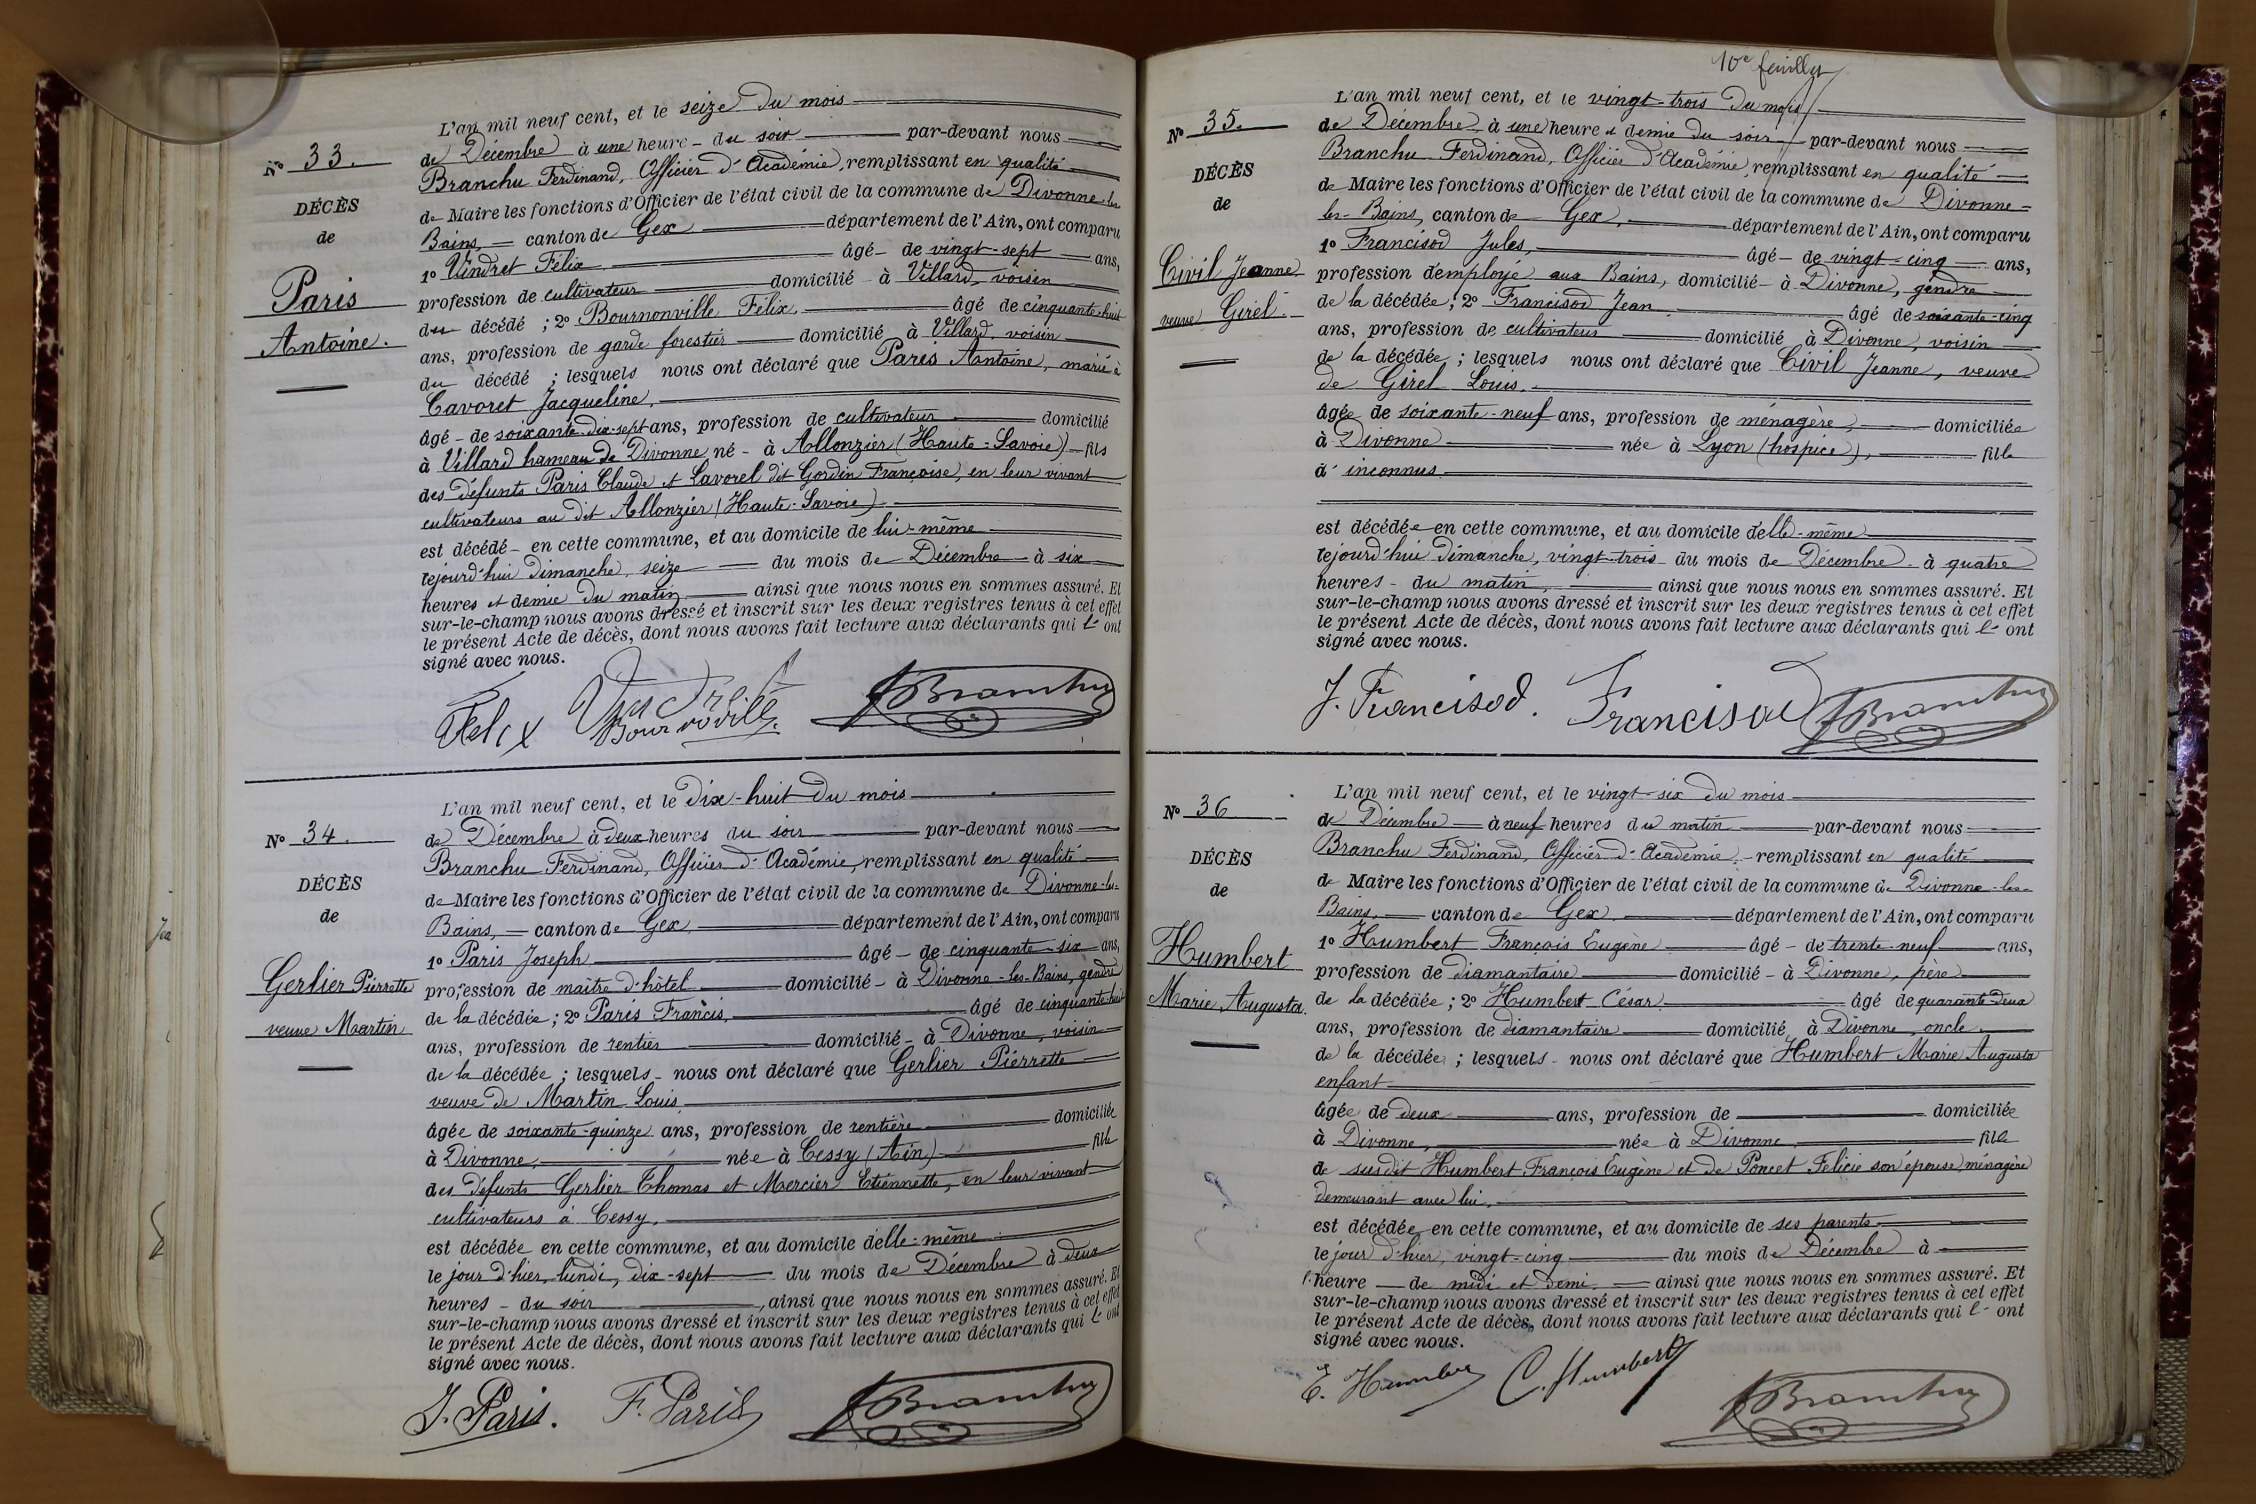 L'an mil neuf cent, et le seize du mois
Nº 33.
de Décembre à une heure du soir par-devant nous
Branchu Ferdinand, Officier d'Académie, remplissant en qualité
DÉCÈS
de
de Maire les fonctions d'Officier de l'état civil de la commune de Divonne-les
Bains, canton de Gex département de l'Ain, ont comparu
1º Vindret Félix âgé de vingt-sept ans,
Paris
Antoine.
profession de cultivateur domicilié à Villard, voisin
du décédé ; 2º Bournonville Félix, âgé de cinquante-huit
ans, profession de garde forestier domicilié à Villard, voisin
du décédé ; lesquels nous ont déclaré que Paris Antoine, marié à
Cavoret Jacqueline,
âgé de soixante-dix-sept ans, profession de cultivateur domicilié
à Villard hameau de Divonne né à Allonzier (Haute-Savoie) fils
des défunts Paris Claude et Lavorel dit Gordin Françoise, en leur vivant
cultivateurs au dit Allonzier (Haute-Savoie)
est décédé en cette commune, et au domicile de lui-même
cejourd'hui dimanche, seize du mois de Décembre à six
heures et demie du matin ainsi que nous nous en sommes assuré. Et
sur-le-champ nous avons dressé et inscrit sur les deux registres tenus à cet effet
le présent Acte de décès, dont nous avons fait lecture aux déclarants qui l' ont
signé avec nous.
Felix Vindret Bournonville FBranchu
L'an mil neuf cent, et le dix-huit du mois
Nº 34.
de Décembre à deux heures du soir par-devant nous
Branchu Ferdinand, Officier d'Académie, remplissant en qualité
DÉCÈS
de
de Maire les fonctions d'Officier de l'état civil de la commune de Divonne-les-
Bains, canton de Gex département de l'Ain, ont comparu
1º Paris Joseph âgé de cinquante-six ans,
Gerlier Pierrette
veuve Martin
profession de maître d'hôtel domicilié à Divonne-les-Bains, gendre
de la décédée ; 2º Paris Francis, âgé de cinquante-huit
ans, profession de rentier domicilié à Divonne, voisin
de la décédée ; lesquels nous ont déclaré que Gerlier Pierrette
veuve de Martin Louis,
âgée de soixante-quinze ans, profession de rentière domiciliée
à Divonne, née à Cessy (Ain) fille
des défunts Gerlier Thomas et Mercier Etiennette, en leur vivant
cultivateurs à Cessy,
est décédée en cette commune, et au domicile d'elle-même
le jour d'hier, lundi, dix-sept du mois de Décembre à deux
heures du soir, ainsi que nous nous en sommes assuré. Et
sur-le-champ nous avons dressé et inscrit sur les deux registres tenus à cet effet
le présent Acte de décès, dont nous avons fait lecture aux déclarants qui l' ont
signé avec nous.
J. Paris. F. Paris FBranchu
10e feuillet
L'an mil neuf cent, et le vingt-trois du mois
Nº 35.
de Décembre à une heure et demie du soir par-devant nous
Branchu Ferdinand, Officier d'Académie, remplissant en qualité
DÉCÈS
de
de Maire les fonctions d'Officier de l'état civil de la commune de Divonne-
les-Bains, canton de Gex, département de l'Ain, ont comparu
1º Francisod Jules, âgé de vingt-cinq ans,
Civil Jeanne
veuve Girel.
profession d'employé aux Bains, domicilié à Divonne, gendre
de la décédée ; 2º Francisod Jean âgé de soixante-cinq
ans, profession de cultivateur domicilié à Divonne, voisin
de la décédée ; lesquels nous ont déclaré que Civil Jeanne, veuve
de Girel Louis,
âgée de soixante-neuf ans, profession de ménagère domiciliée
à Divonne née à Lyon (hospice), fille
d'inconnus
est décédée en cette commune, et au domicile d'elle-même
cejourd'hui dimanche, vingt-trois du mois de Décembre à quatre
heures du matin, ainsi que nous nous en sommes assuré. Et
sur-le-champ nous avons dressé et inscrit sur les deux registres tenus à cet effet
le présent Acte de décès, dont nous avons fait lecture aux déclarants qui l' ont
signé avec nous.
J. Francisod. Francisod FBranchu
L'an mil neuf cent, et le vingt-six du mois
Nº 36
de Décembre à neuf heures du matin par-devant nous
Branchu Ferdinand, Officier d'Académie, remplissant en qualité
DÉCÈS
de
de Maire les fonctions d'Officier de l'état civil de la commune de Divonne-les-
Bains, canton de Gex, département de l'Ain, ont comparu
1º Humbert François Eugène âgé de trente-neuf ans,
Humbert
Marie Augusta.
profession de diamantaire domicilié à Divonne, père
de la décédée ; 2º Humbert César âgé de quarante-deux
ans, profession de diamantaire domicilié à Divonne, oncle
de la décédée ; lesquels nous ont déclaré que Humbert Marie Augusta
enfant
âgée de deux ans, profession de domiciliée
à Divonne, née à Divonne fille
de susdit Humbert François Eugène et de Poncet Felicie son épouse ménagère
demeurant avec lui,
est décédée en cette commune, et au domicile de ses parents
le jour d'hier, vingt-cinq du mois de Décembre à
l'heure de midi et demi ainsi que nous nous en sommes assuré. Et
sur-le-champ nous avons dressé et inscrit sur les deux registres tenus à cet effet
le présent Acte de décès, dont nous avons fait lecture aux déclarants qui l' ont
signé avec nous.
E. Humbert C. Humbert FBranchu